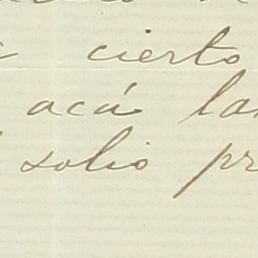 cierto
acá la
solio pr